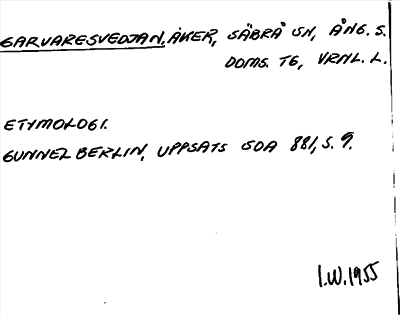 GARVARESVEDJAN, ÅKER, SÄBRÅ SN, ÅNG. S.
DOMS. TG, VRNL. L.
ETYMOLOGI.
GUNNEL BERLIN, UPPSATS SOA 881, S. 9.
I.W. 1955